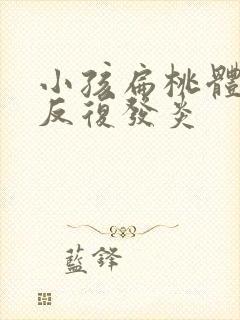 小孩扁桃體
反復發炎
藍鋒